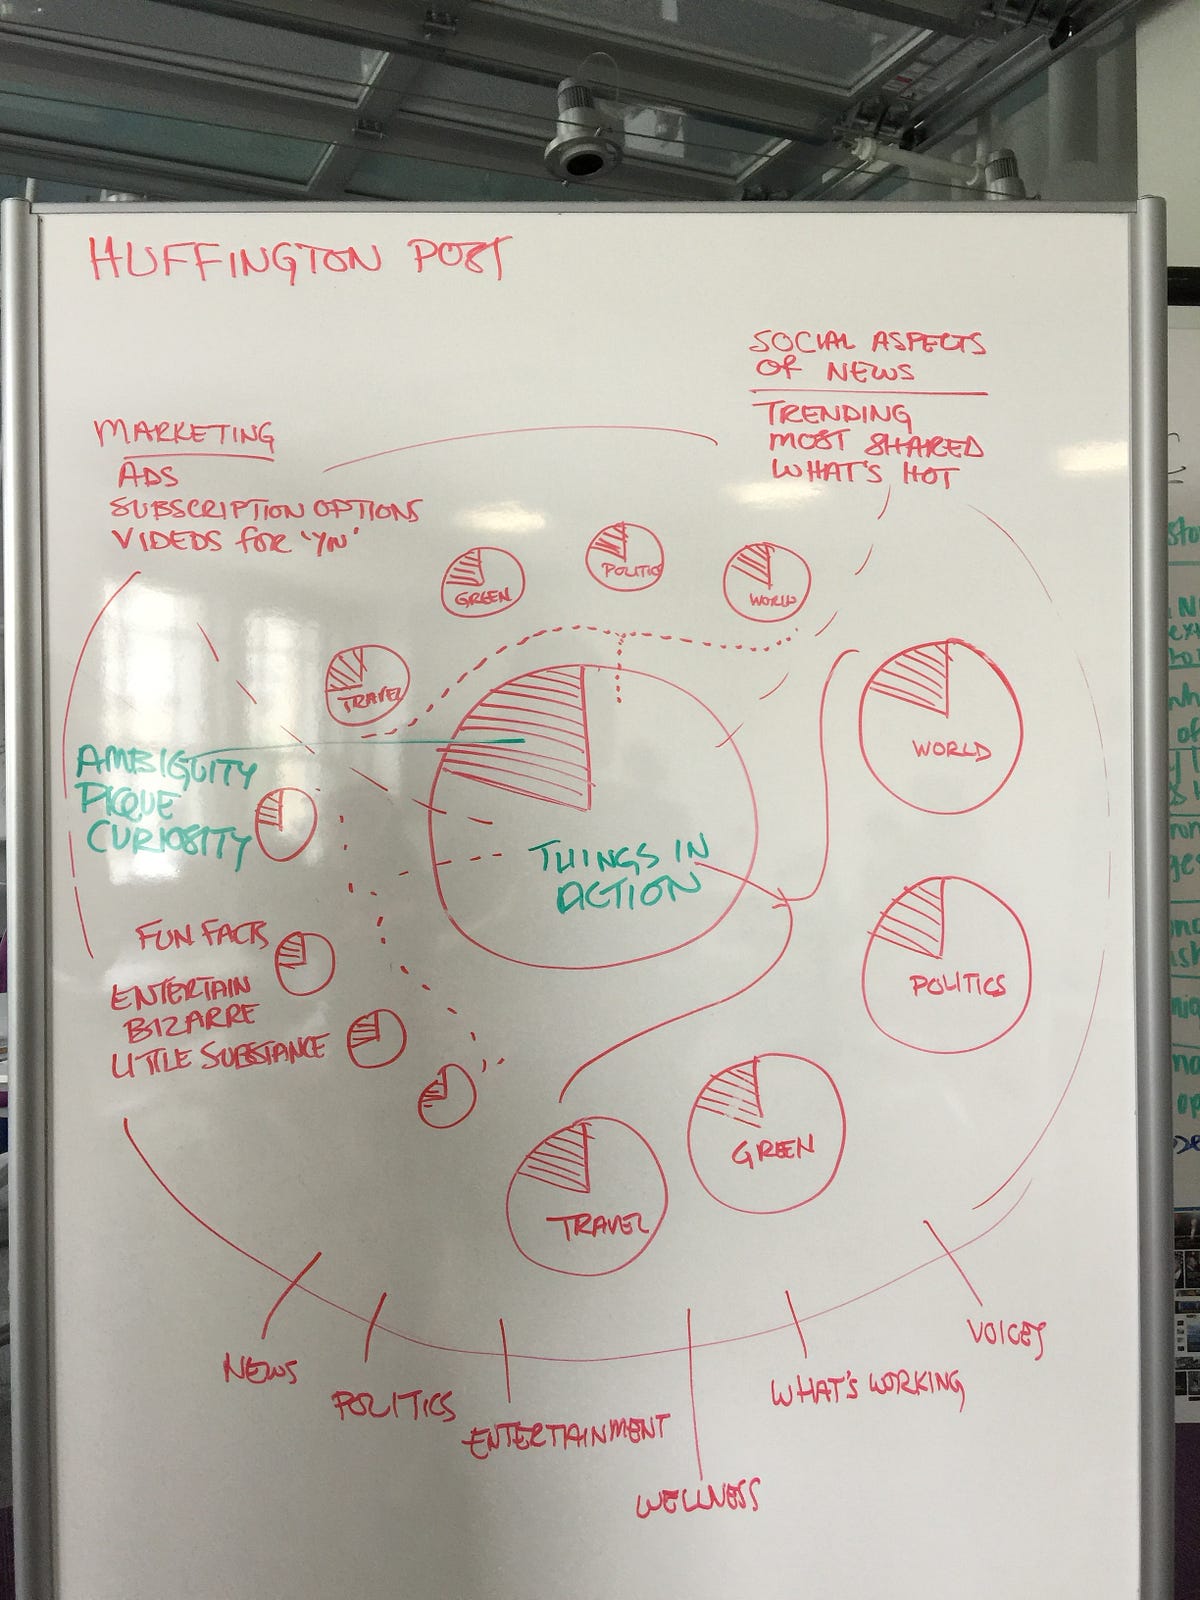 HUFFINGTON POST
SOCIAL ASPECTS
OF NEWS
TRENDING
MOST SHARED
WHAT'S HOT
MARKETING
ADS
SUBSCRIPTION OPTIONS
VIDEOS FOR 'YN'
GREEN
POLITIC
WORLD
TRAVEL
WORLD
AMBIGUITY
PIQUE
CURIOSITY
THINGS IN
ACTION
FUN FACTS
ENTERTAIN
BIZARRE
LITTLE SUBSTANCE
POLITICS
GREEN
TRAVEL
NEWS
POLITICS
ENTERTAINMENT
WELLNESS
WHAT'S WORKING
VOICES